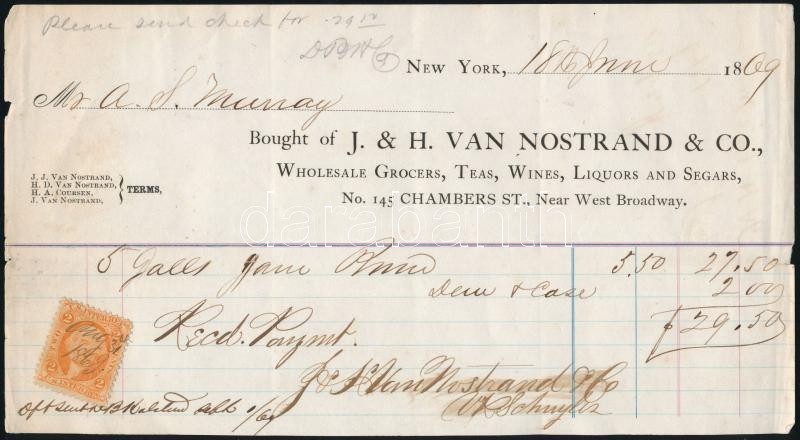 Please send check for .29 50
New York, 18th June 1869
Mr A. S. Murray
Bought of J. & H. VAN NOSTRAND & CO.,
Wholesale Grocers, Teas, Wines, Liquors and Segars,
No. 145 CHAMBERS ST., Near West Broadway.
J. J. Van Nostrand,
H. D. Van Nostrand,
H. A. Coursen,
J. Van Nostrand,
TERMS,
darabanth
5 Galls Jam 5.50 27.50
Dem & Case 2.00
$29.50
Recd. Paymt.
J & H Van Nostrand & Co
Schuyler
2 2